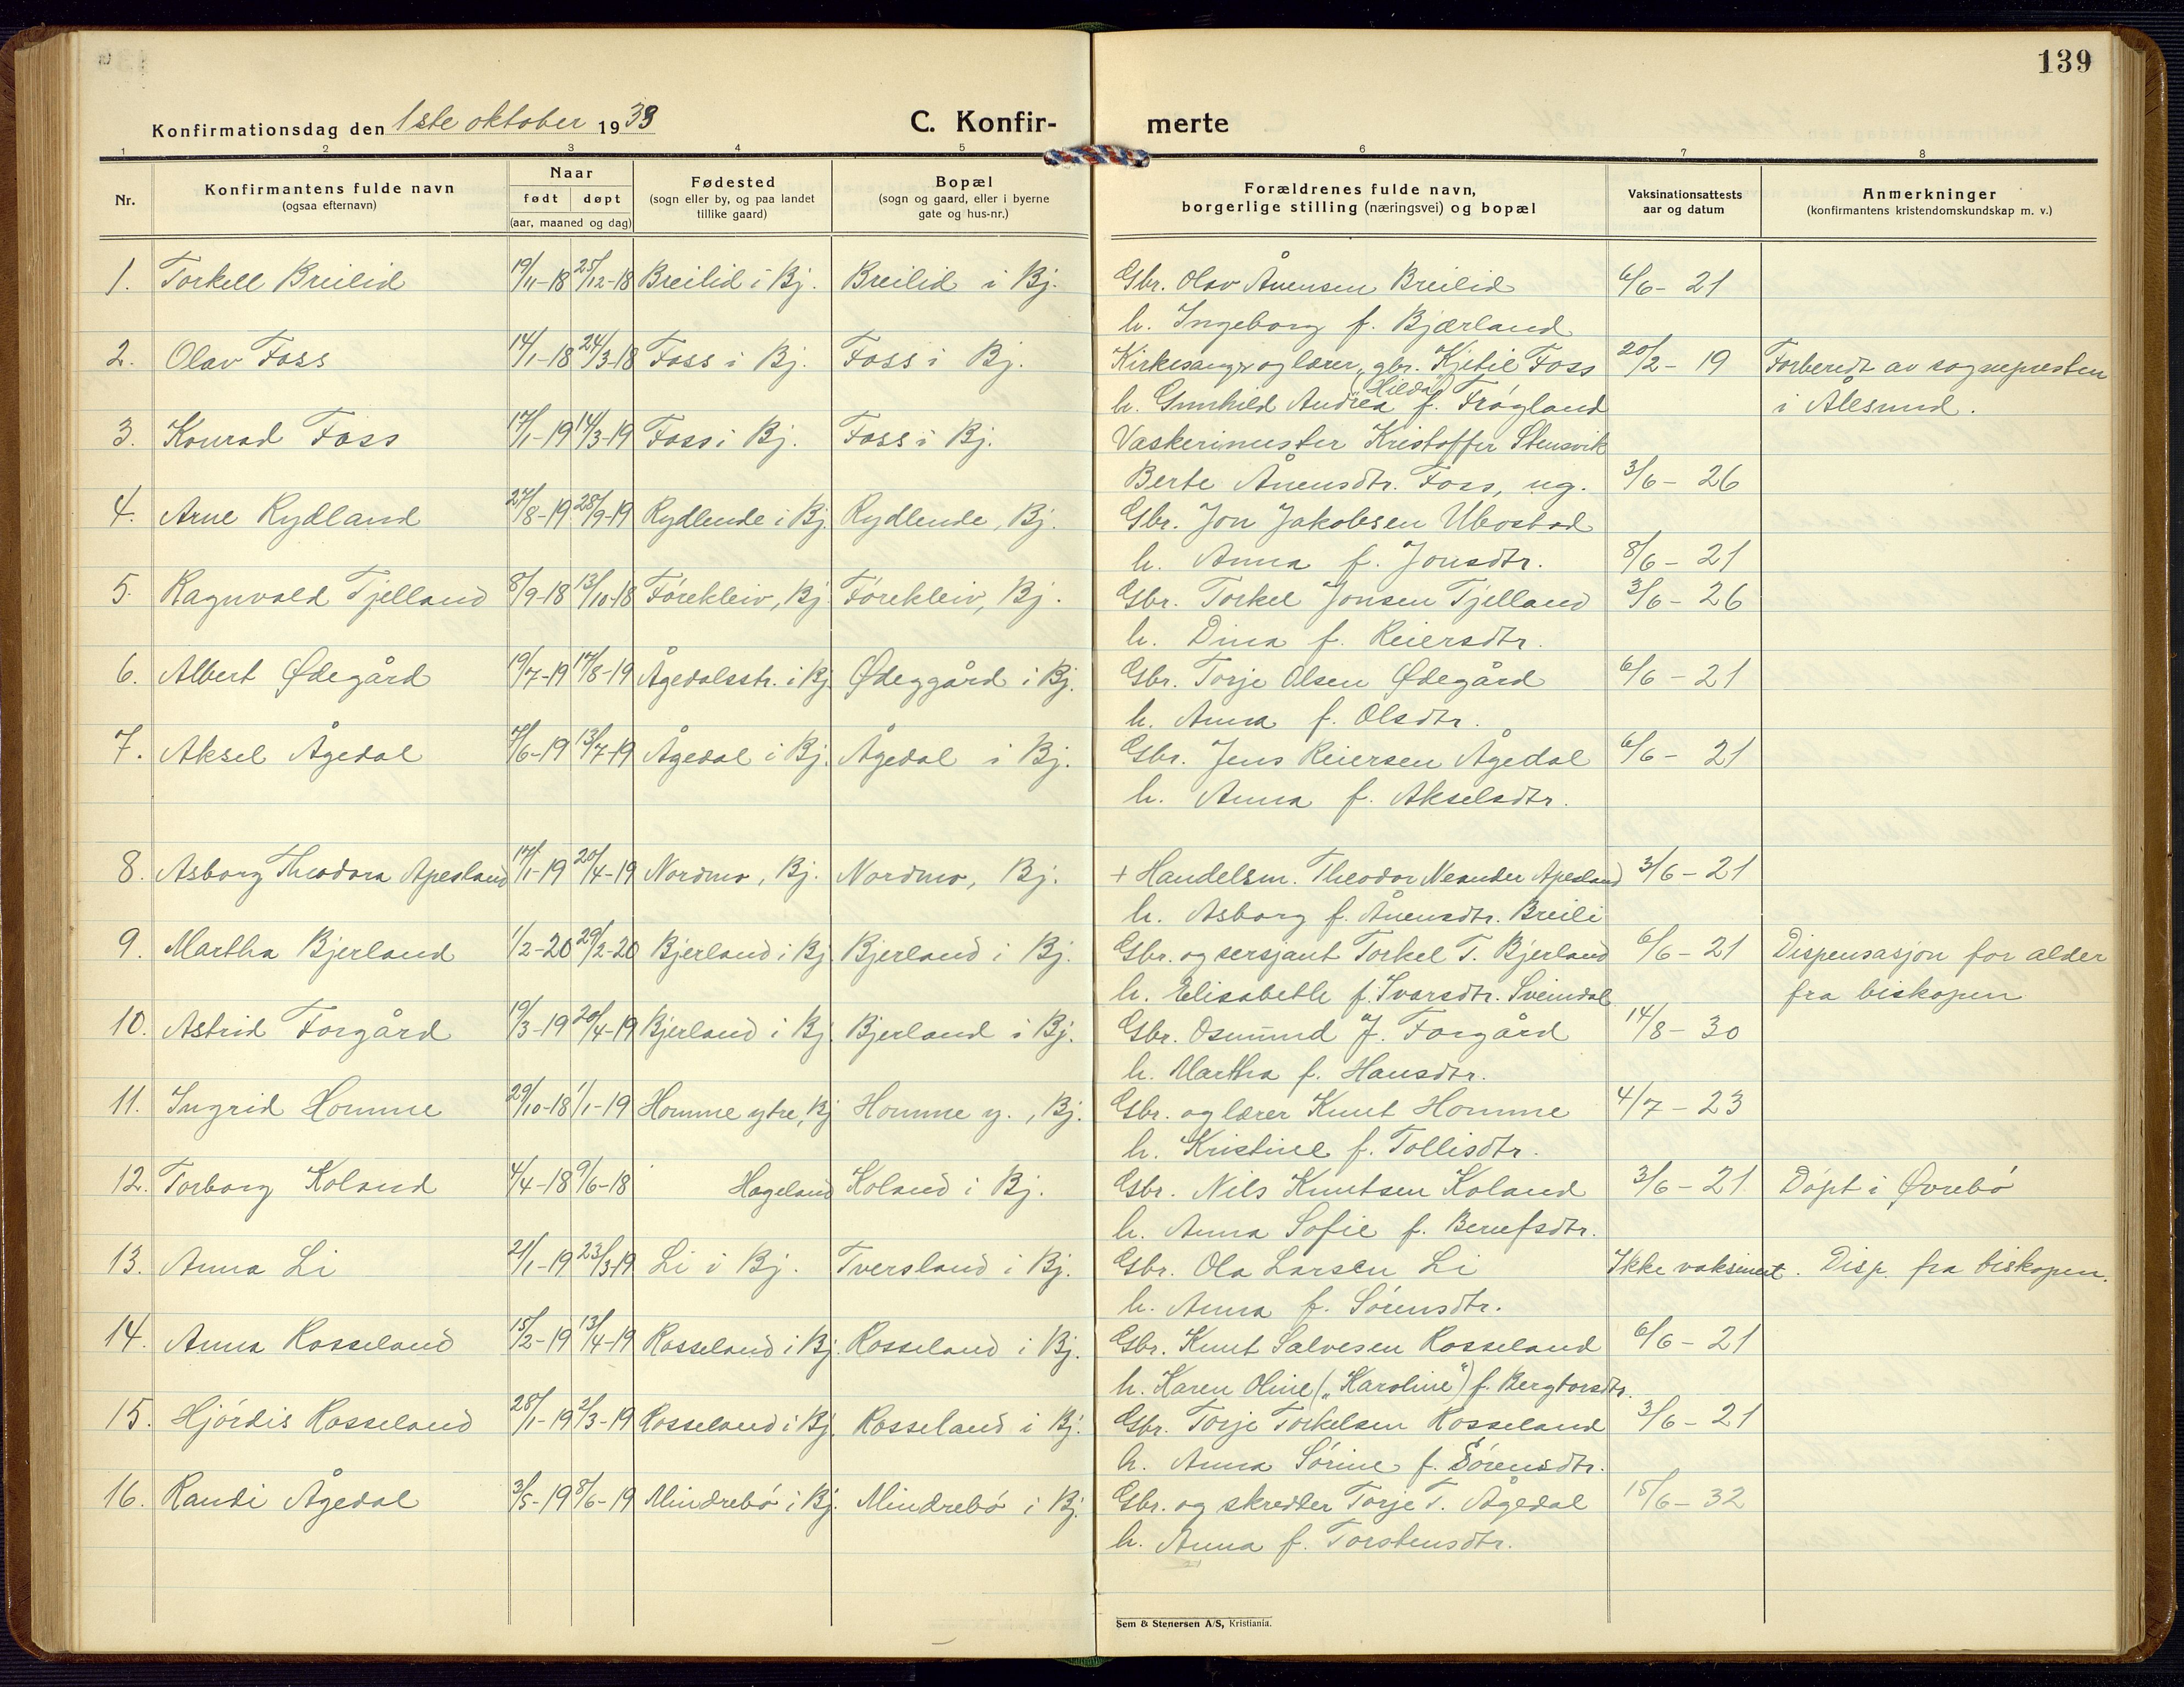 139
Konfirmationsdag den 1ste oktober 1933 C. Konfir- merte
1 2 3 4 5 6 7 8
Nr. Konfirmantens fulde navn (ogsaa efternavn) Naar født døpt (aar, maaned og dag) Fødested (sogn eller by, og paa landet tillike gaard) Bopæl (sogn og gaard, eller i byerne gate og hus-nr.) Forældrenes fulde navn, borgerlige stilling (næringsvei) og bopæl Vaksinationsattests aar og datum Anmerkninger (konfirmantens kristendomskundskap m. v.)
1. Torkell Breilid 19/11-18 25/12-18 Breilid i Bj. Breilid i Bj. Gbr. Olav Ånensen Breilid 6/6- 21
h. Ingeborg f. Bjærland
2. Olav Foss 14/1-18 24/3-18 Foss i Bj. Foss i Bj. Kirkesanger og lærer, gbr. Kjetil Foss 20/2- 19 Forberedt av sognepresten
h. Gunhild Andrea ("Hilda") f. Frøgland i Ålesund.
3. Konrad Foss 17/1-19 14/3-19 Foss i Bj. Foss i Bj. Vaskerimester Kristoffer Stensvik
Berte Ånensdtr. Foss, ug. 3/6- 26
4. Arne Rydland 27/8-19 28/9-19 Rydlende i Bj. Rydlende, Bj. Gbr. Jon Jakobsen Ubostad
h. Anna f. Jonsdtr. 8/6- 21
5. Ragnvald Tjelland 8/9-18 13/10-18 Førekleiv, Bj. Førekleiv, Bj. Gbr. Torkel Jonsen Tjelland 3/6- 26
h. Dina f. Reiersdtr.
6. Albert Ødegård 19/7-19 17/8-19 Ågedalsstr. i Bj. Ødeggård i Bj. Gbr. Torje Olsen Ødegård 6/6- 21
h. Anna f. Olsdtr.
7. Aksel Ågedal 7/6-19 13/7-19 Ågedal i Bj. Ågedal i Bj. Gbr. Jens Reiersen Ågedal 6/6- 21
h. Anna f. Akselsdtr.
8. Asborg Theodora Apesland 17/1-19 20/4-19 Nordmo, Bj. Nordmo, Bj. + Handelsm. Theodor Neander Apesland 3/6- 21
h. Asborg f. Ånensdtr. Breili
9. Martha Bjerland 1/2-20 29/2-20 Bjerland i Bj. Bjerland i Bj. Gbr. og sersjant Torkel T. Bjerland 6/6- 21 Dispensasjon for alder
h. Elisabeth f. Ivarsdtr. Sveindal fra biskopen
10. Astrid Forgård 19/3-19 20/4-19 Bjerland i Bj. Bjerland i Bj. Gbr. Osmund J. Forgård 14/8- 30
h. Martha f. Hansdtr.
11. Ingrid Homme 29/10-18 1/1-19 Homme ytre, Bj Homme y., Bj. Gbr. og lærer Knut Homme 4/7- 23
h. Kristine f. Tollisdtr.
12. Torborg Koland 4/4-18 9/6-18 Hægeland Koland i Bj. Gbr. Nils Knutsen Koland 3/6- 21 Døpt i Øvrebø
h. Anna Sofie f. Berufsdtr.
13. Anna Li 21/1-19 23/3-19 Li i Bj. Tversland i Bj. Gbr. Ola Larsen Li Ikke vaksinert. Disp. fra biskopen.
h. Anna f. Sørensdtr.
14. Anna Rosseland 15/2-19 13/4-19 Rosseland i Bj. Rosseland i Bj. Gbr. Knut Salvesen Rosseland 6/6- 21
h. Karen Oline ("Karoline") f. Bergtorsdtr.
15. Hjørdis Rosseland 28/1-19 2/3-19 Rosseland i Bj. Rosseland i Bj. Gbr. Torje Torkelsen Rosseland 3/6- 21
h. Anna Sørine f. Sørensdtr.
16. Randi Ågedal 3/5-19 8/6-19 Mindrebø i Bj. Mindrebø i Bj. Gbr. og skredder Torje T. Ågedal 15/6- 32
h. Anna f. Torstensdtr.
Sem & Stenersen A/S, Kristiania.